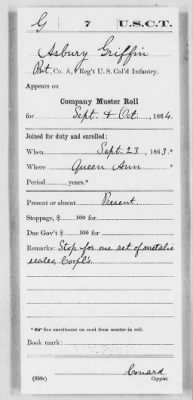 G 7 U.S.C.T.
Asbury Griffin
Pvt., Co. A, 7 Reg't U. S. Col'd Infantry.
Appears on
Company Muster Roll
for Sept. & Oct., 1864.
Joined for duty and enrolled:
When Sept. 23, 1863.*
Where Queen Ann
Period years.*
Present or absent Present
Stoppage, $ 100 for
Due Gov't $ 100 for
Remarks: Stop for one set of metalic
scales, Corpl's.
*See enrollment on card from muster-in roll.
Book mark:
Conard
(358c) Copyist.